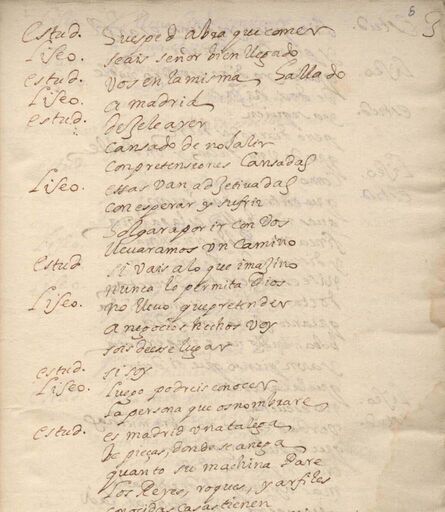 8
estud. Huesped abra que comer
Liseo. seais señor bien llegado
estud. vos en la misma hallado
Liseo. a madrid
estud. dexele ayer
cansado de no salir
con pretensiones cansadas
Liseo. essas van adjetivadas
con esperar y sufrir
holgara por ir con vos
lleuaramos un camino
estud si vais a lo que imagino
nunca lo permita Dios
Liseo. no lleuo que pretender
a negocios hechos voy
sois dese lugar
estud. si soy
Liseo. luego podreis conocer
la persona que os nombrare
estud. es madrid una talega
de pieças, donde se anega
quanto su machina pare
los Reyes, roques, y arfiles
conocidas casas tienen